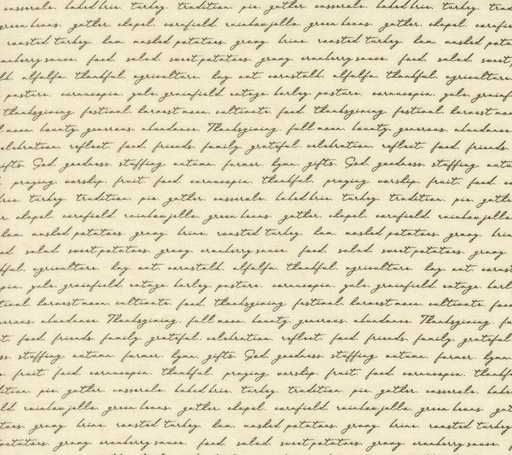 casserole. baked brie. turkey. tradition. pie. gather. casserole. baked brie. turkey.
green beans. gather. chapel. cornfield. rainbow jello. green beans. gather. chapel.
roasted turkey. ham. mashed potatoes. gravy. brine. roasted turkey. ham. mashed
cranberry sauce. food. salad. sweet potatoes. gravy. cranberry sauce. food. salad. sweet
alfalfa. thankful. agriculture. hay. oat. cornstalk. alfalfa. thankful. agriculture.
pasture. cornucopia. yule. grainfield. cottage. barley. pasture. cornucopia. yule.
thanksgiving. festival. harvest moon. cultivate. feed. thanksgiving. festival. harvest moon
moon. bounty. generous. abundance. Thanksgiving. full moon. bounty. generous. abundance.
celebration. reflect. food. friends. family. grateful. celebration. reflect. food. friends.
gifts. God. goodness. stuffing. autumn. farmer. hymn. gifts. God. goodness. stuffing.
praying. worship. fruit. food. cornucopia. thankful. praying. worship. fruit. food.
brie. turkey. tradition. pie. gather. casserole. baked brie. turkey. tradition. pie. gather.
chapel. cornfield. rainbow jello. green beans. gather. chapel. cornfield. rainbow jello.
ham. mashed potatoes. gravy. brine. roasted turkey. ham. mashed potatoes. gravy.
salad. sweet potatoes. gravy. cranberry sauce. food. salad. sweet potatoes. gravy.
agriculture. hay. oat. cornstalk. alfalfa. thankful. agriculture. hay. oat.
yule. grainfield. cottage. barley. pasture. cornucopia. yule. grainfield. cottage.
harvest moon. cultivate. feed. thanksgiving. festival. harvest moon. cultivate.
abundance. Thanksgiving. full moon. bounty. generous. abundance. Thanksgiving.
food. friends. family. grateful. celebration. reflect. food. friends. family. grateful.
stuffing. autumn. farmer. hymn. gifts. God. goodness. stuffing. autumn. farmer. hymn.
fruit. food. cornucopia. thankful. praying. worship. fruit. food. cornucopia.
pie. gather. casserole. baked brie. turkey. tradition. pie. gather. casserole.
rainbow jello. green beans. gather. chapel. cornfield. rainbow jello. green beans.
gravy. brine. roasted turkey. ham. mashed potatoes. gravy. brine. roasted turkey.
potatoes. gravy. cranberry sauce. food. salad. sweet potatoes. gravy. cranberry sauce.